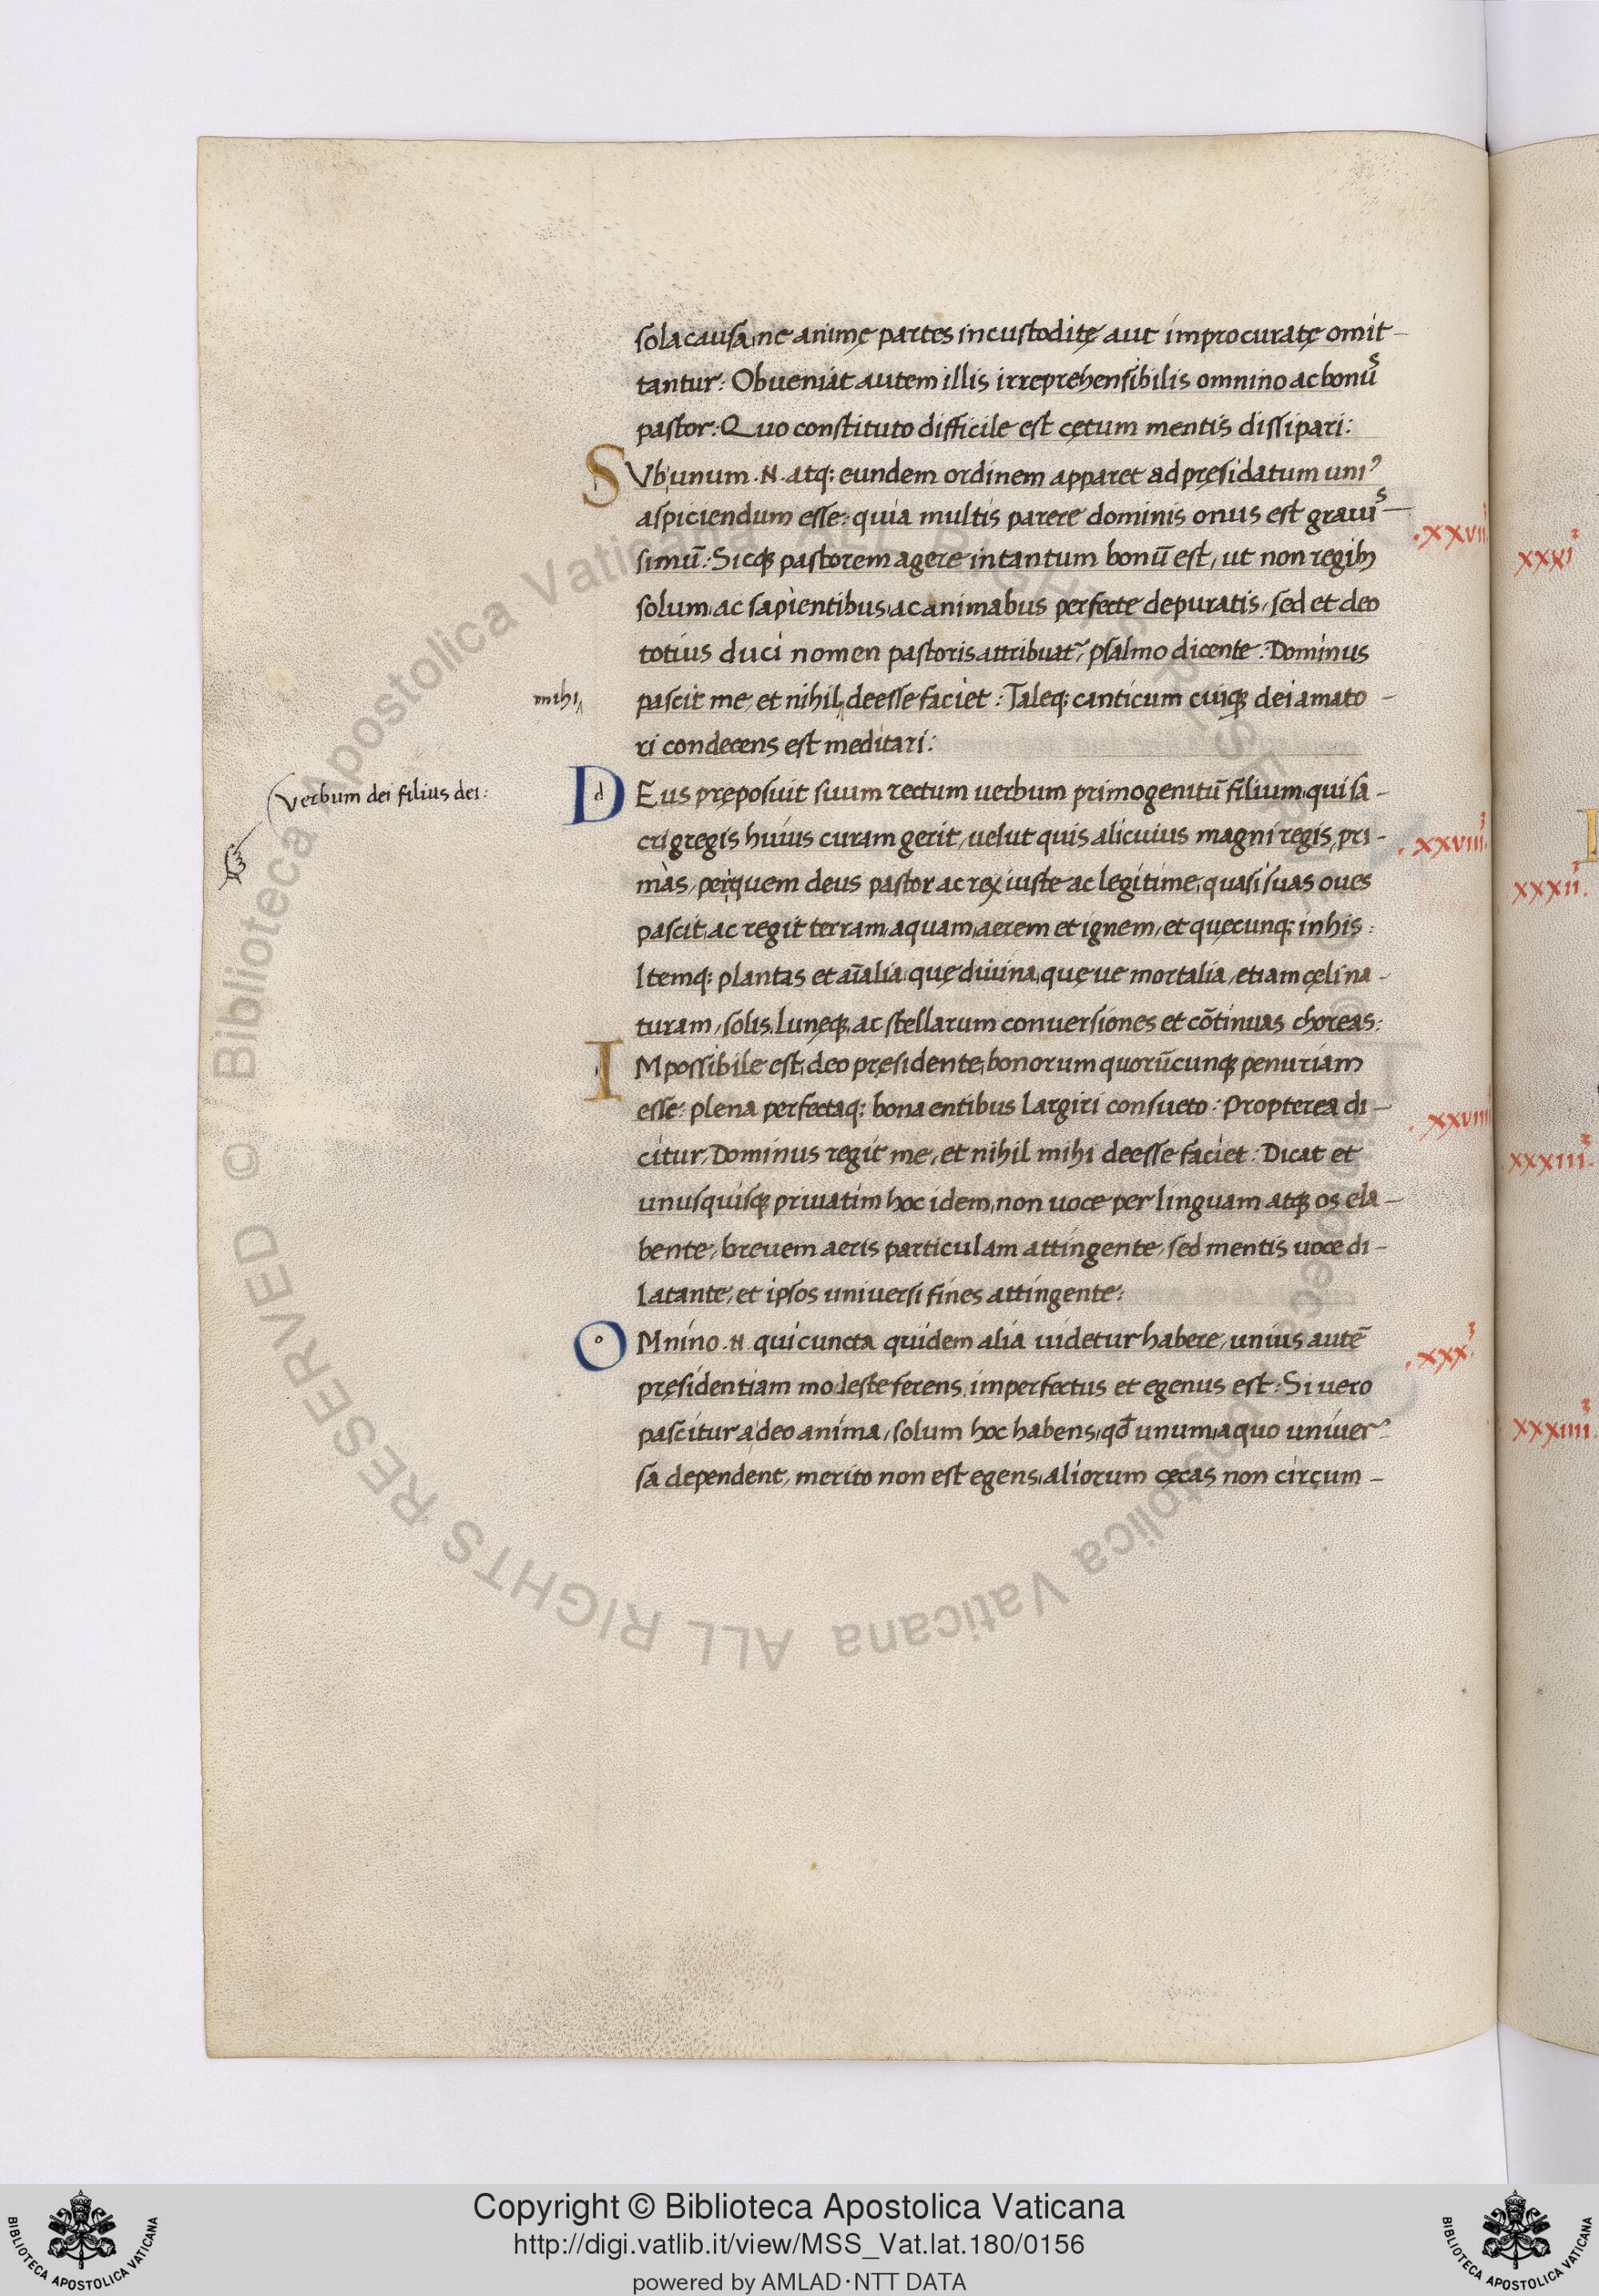 sola causa, ne animę partes incustoditę aut improcuratę omit-
tantur: Obueniat autem illis irreprehensibilis omnino ac bonūs
pastor: Quo constituto difficile est cętum mentis dissipari:
SVb unum .N. atq; eundem ordinem apparet ad pręsidatum uniꝰ
aspiciendum esse: quia multis parere dominis onus est grauis-
simū: Sicq; pastorem agere in tantum bonū est, ut non regib;
solum, ac sapientibus, ac animabus perfecte depuratis, sed et deo
totius duci nomen pastoris attribuat᷑, psalmo dicente: Dominus
mihi
pascit me, et nihil deesse faciet: Taleq; canticum cuiq; dei amato-
ri condecens est meditari:
Verbum dei filius dei:
DEus pręposuit suum rectum uerbum primogenitū filium, qui sa-
cri gregis huius curam gerit, uelut quis alicuius magni regis, pri-
mas, per quem deus pastor ac rex iuste ac legitime, quasi suas oues
pascit, ac regit terram, aquam, aerem et ignem, et quęcunq; in his:
Itemq; plantas et aīalia, quę diuina, quę ue mortalia, etiam cęli na-
turam, solis, lunęq;, ac stellarum conuersiones et cōtinuas choreas:
IMpossibile est, deo pręsidente, bonorum quorūcunq; penuriam
esse: plena perfectaq; bona entibus largiri consueto: Propterea di-
citur, Dominus regit me, et nihil mihi deesse faciet: Dicat et
unusquisq; priuatim hoc idem, non uoce per linguam atq; os ela-
bente, breuem aeris particulam attingente, sed mentis uoce di-
latante, et ipsos uniuersi fines attingente:
OMnino .N. qui cuncta quidem alia uidetur habere, unius autē
pręsidentiam modeste ferens, imperfectus et egenus est: Si uero
pascitur a deo anima, solum hoc habens, qđ unum, a quo uniuer-
sa dependent, merito non est egens, aliorum cęcas non circum-
.xxvii
.xxviii.
.xxviiii
.xxx.
xxxi
xxxii.
.xxxiii.
xxxiiii.
Copyright © Biblioteca Apostolica Vaticana
http://digi.vatlib.it/view/MSS_Vat.lat.180/0156
powered by AMLAD·NTT DATA
BIBLIOTECA APOSTOLICA VATICANA
BIBLIOTECA APOSTOLICA VATICANA
© Biblioteca Apostolica Vaticana ALL RIGHTS RESERVED